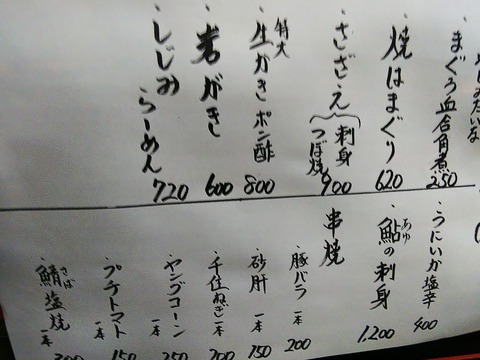 まぐろ血合角煮 250
焼はまぐり 620
さざえ 刺身 つぼ焼 900
特大 生がき ポン酢 800
岩がき 600
しじみらーめん 720
うにいか塩辛 400
鮎の刺身 1,200
あゆ
串焼
豚バラ 一本 200
砂肝 一本 150
千住ねぎ 一本 200
ヤングコーン 一本 250
プチトマト 一本 150
鯖塩焼 一本
さば